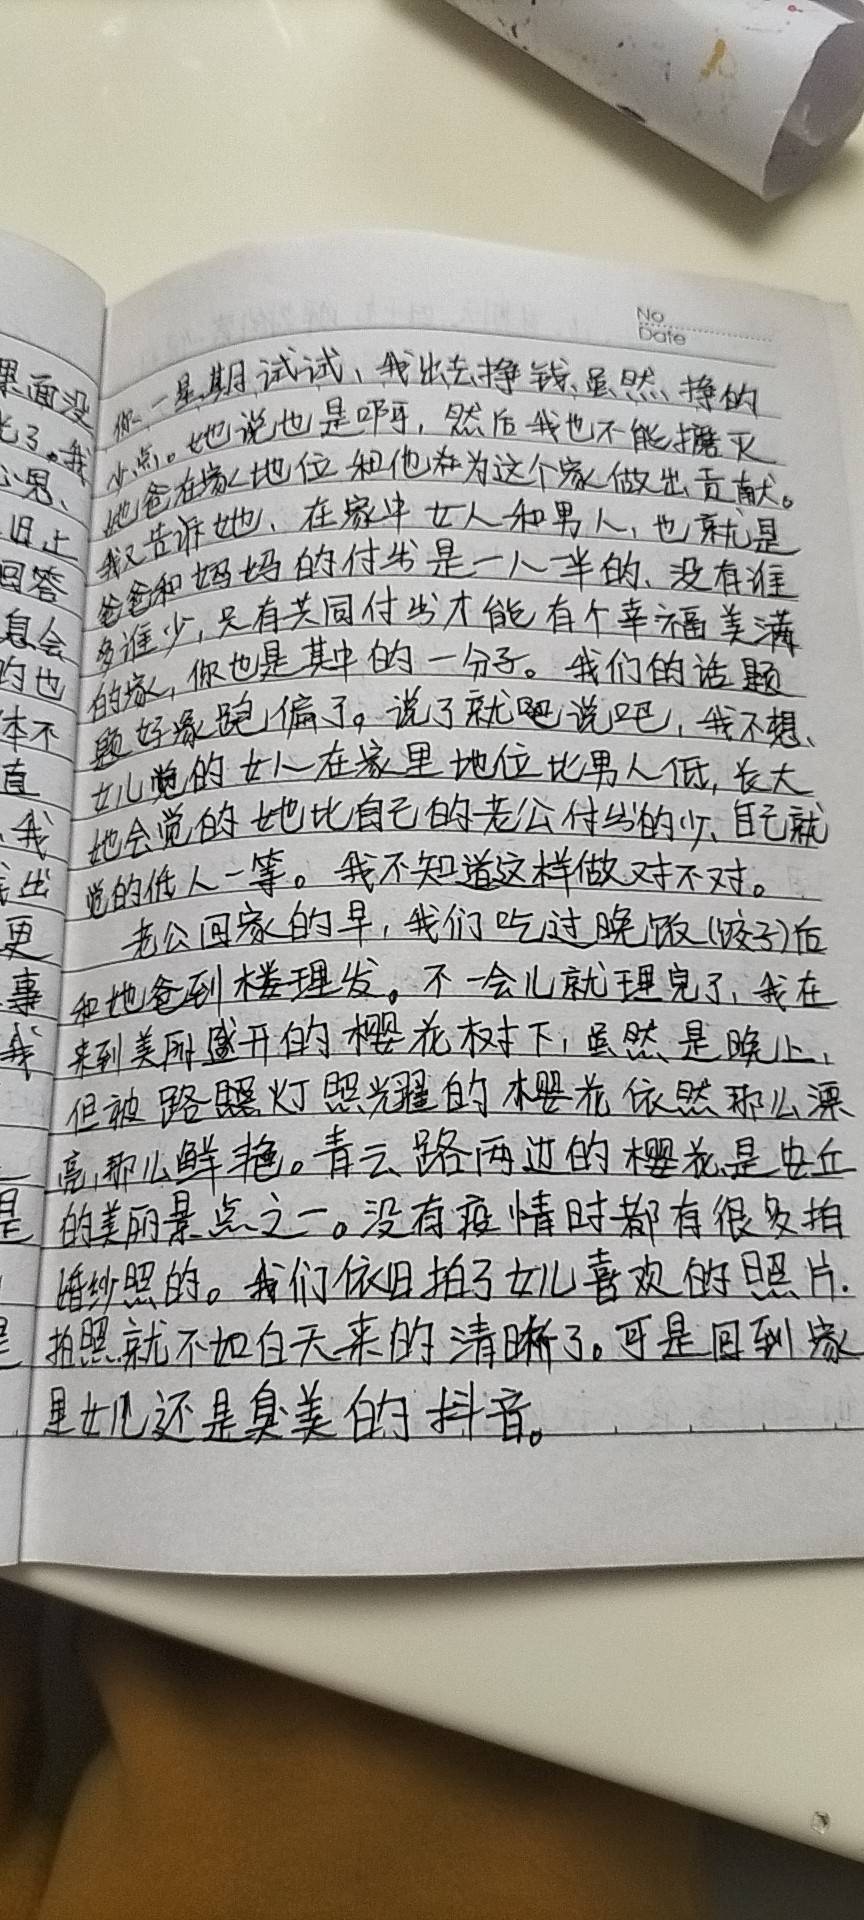 No
Date
你一星期试试、我出去挣钱、虽然、挣的
少点。她说也是啊,然后我也不能磨灭
她爸在家地位和他在为这个家做出贡献。
我又告诉她、在家中女人和男人,也就是
爸爸和妈妈的付出是一人一半的、没有谁
多谁少,只有共同付出才能有个幸福美满
的家,你也是其中的一分子。我们的话题
题好像跑偏了。说了就吧说吧,我不想、
女儿觉的女人在家里地位比男人低,长大
她会觉的她比自己的老公付出的少、自己就
觉的低人一等。我不知道这样做对不对。
老公回家的早,我们吃过晚饭(饺子)后
和她爸到楼理发。不一会儿就理完了,我在
来到美丽盛开的樱花树下,虽然是晚上,
但被路照灯照耀的樱花依然那么漂
亮,那么鲜艳。青云路两边的樱花是安丘
的美丽景点之一。没有疫情时都有很多拍
婚纱照的。我们依旧拍了女儿喜欢的照片.
拍照就不如白天来的清晰了。可是回到家
里女儿还是臭美的抖音。
里面没
了。我
旧上
回答
息会
的也
体不
直
、我
出
更
事
我
是